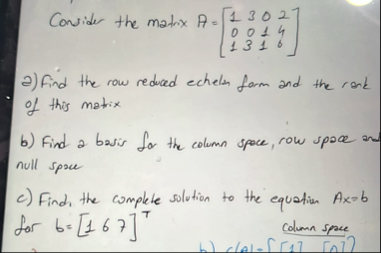 Consider the matrix A = [1 3 0 2
0 0 1 4
1 3 1 6]
a) Find the row reduced echelon form and the rank
of this matrix
b) Find a basis for the column space, row space and
null space
c) Find, the complete solution to the equation Ax=b
for b=[1 6 7]ᵀ
column space